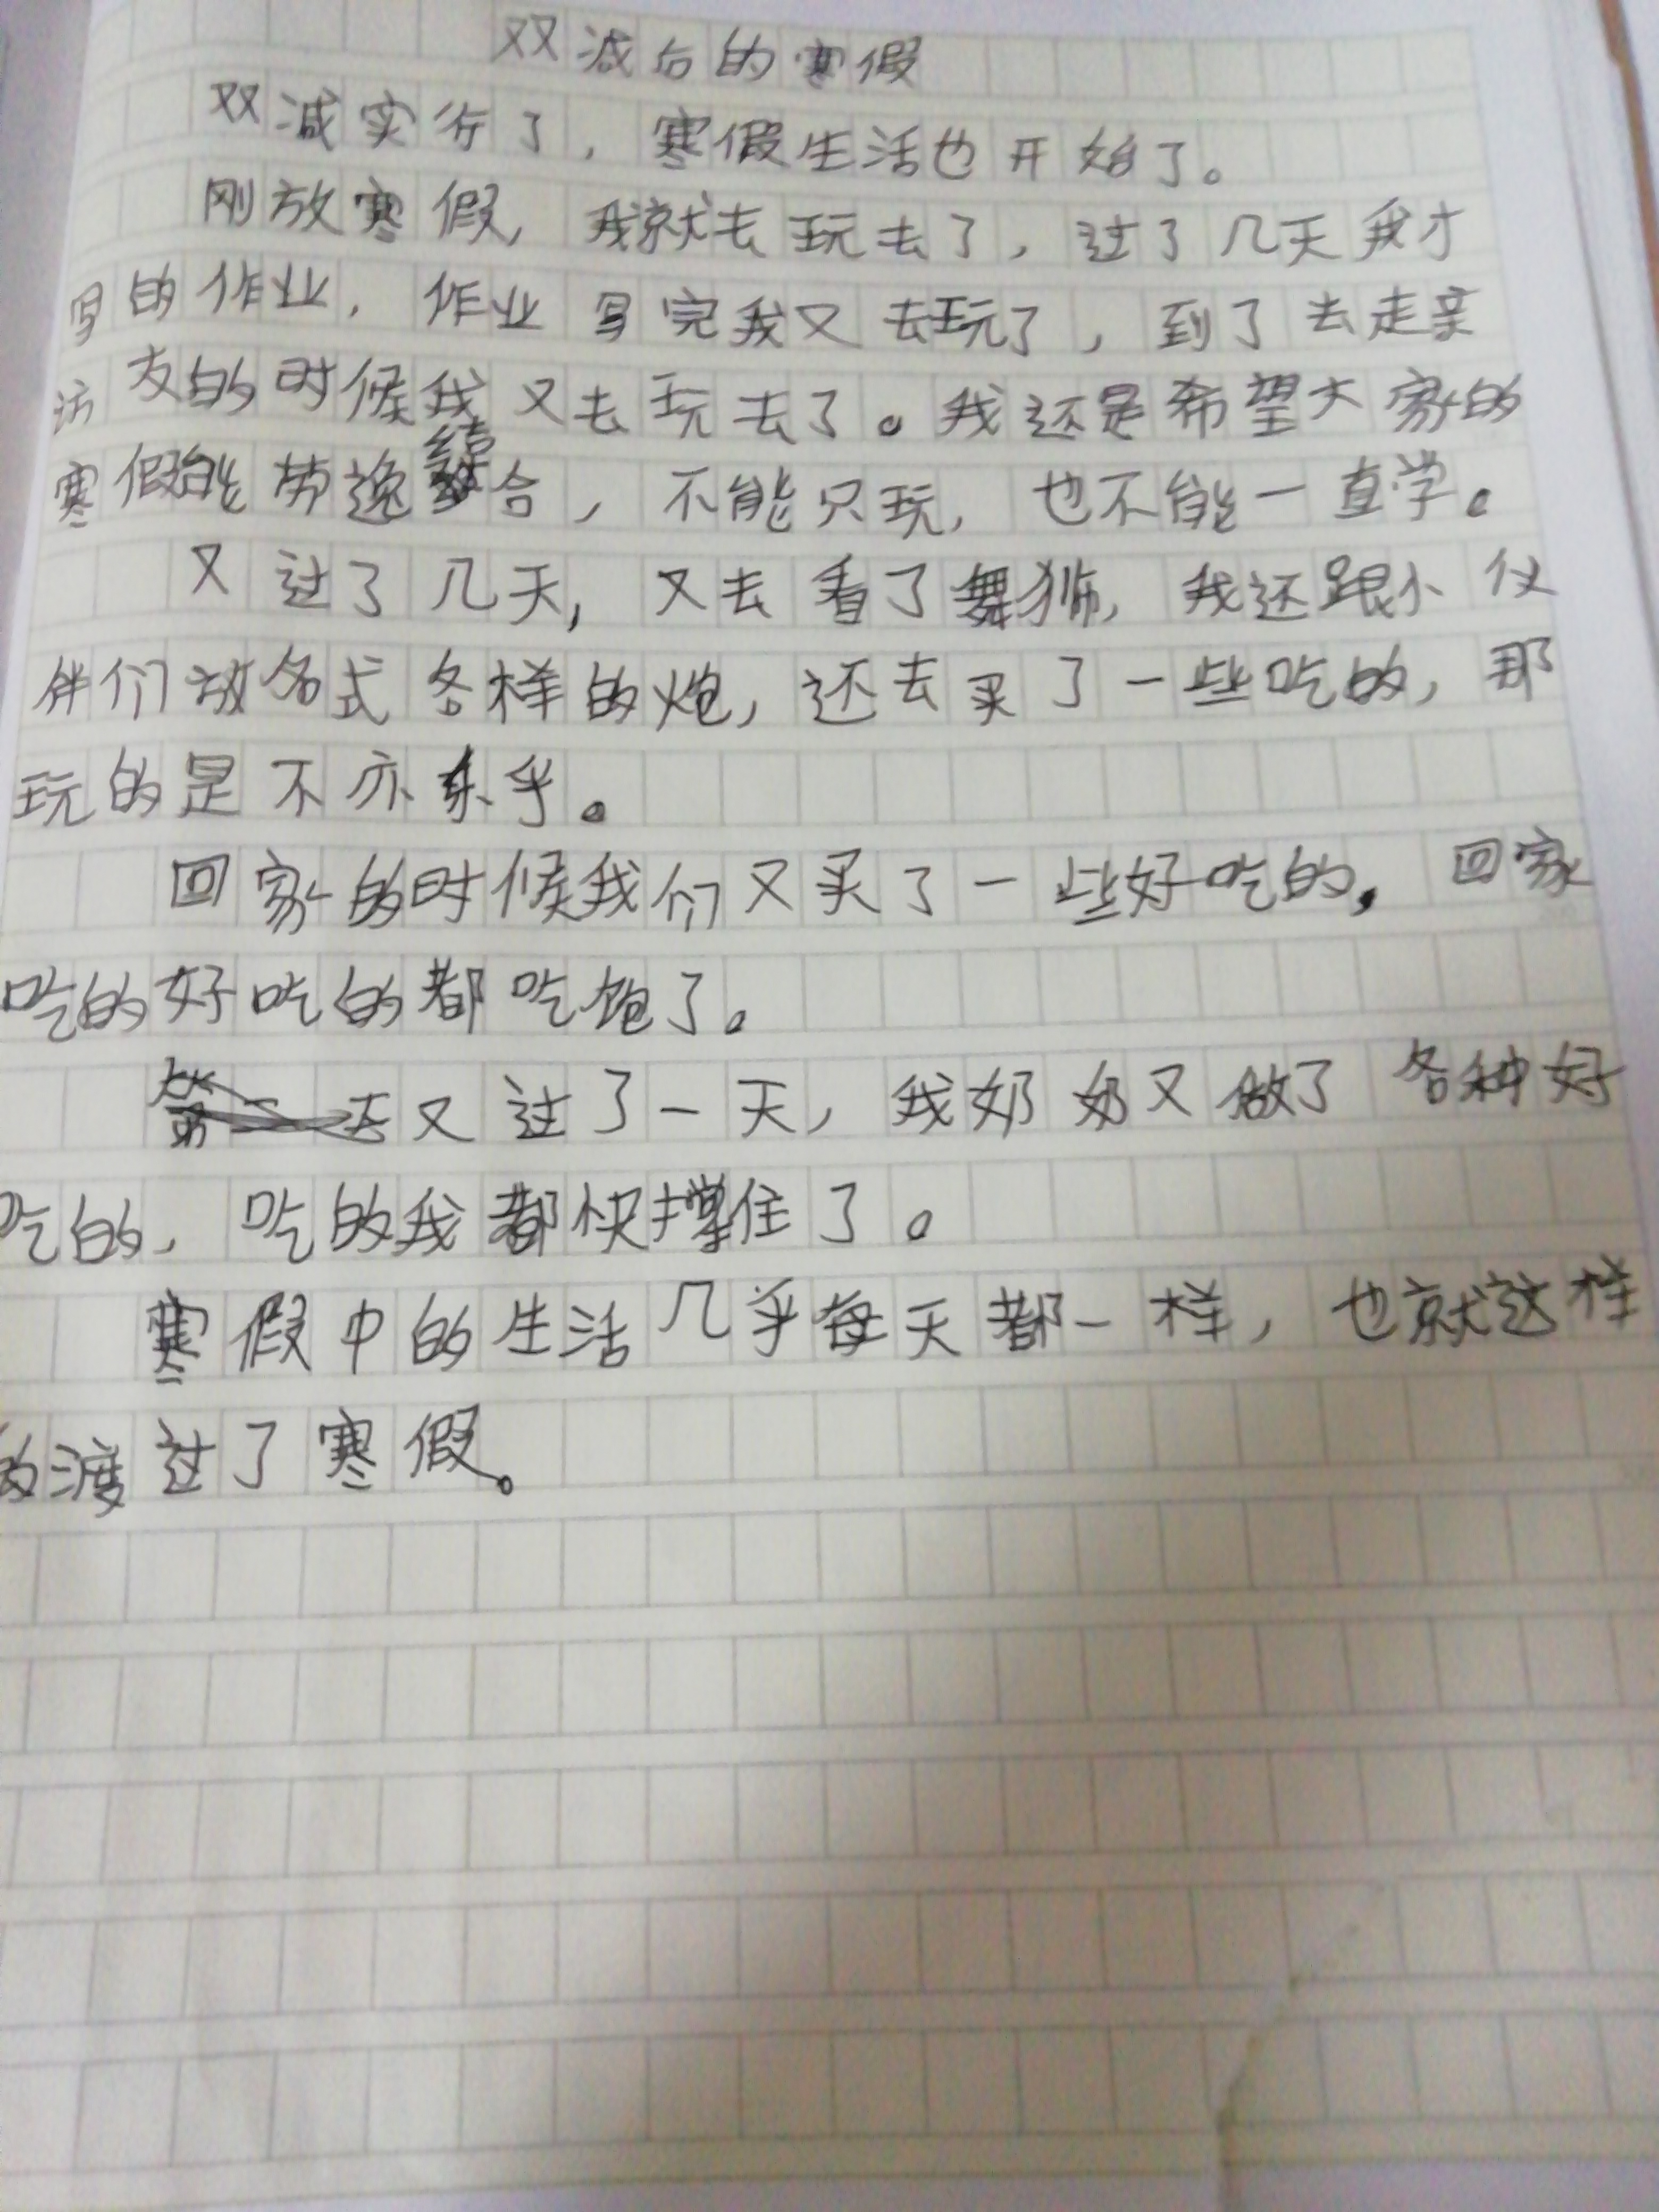 双减后的寒假
双减实行了，寒假生活也开始了。
刚放寒假，我就去玩去了，过了几天我才
写的作业，作业写完我又去玩了，到了去走亲
访友的时候我又去玩去了。我还是希望大家的
寒假能劳逸结合，不能只玩，也不能一直学。
又过了几天，又去看了舞狮，我还跟小伙
伴们放各式各样的炮，还去买了一些吃的，那
玩的是不亦乐乎。
回家的时候我们又买了一些好吃的，回家
吃的好吃的都吃饱了。
又过了一天，我奶奶又做了各种好
吃的，吃的我都快撑住了。
寒假中的生活几乎每天都一样，也就这样
的渡过了寒假。